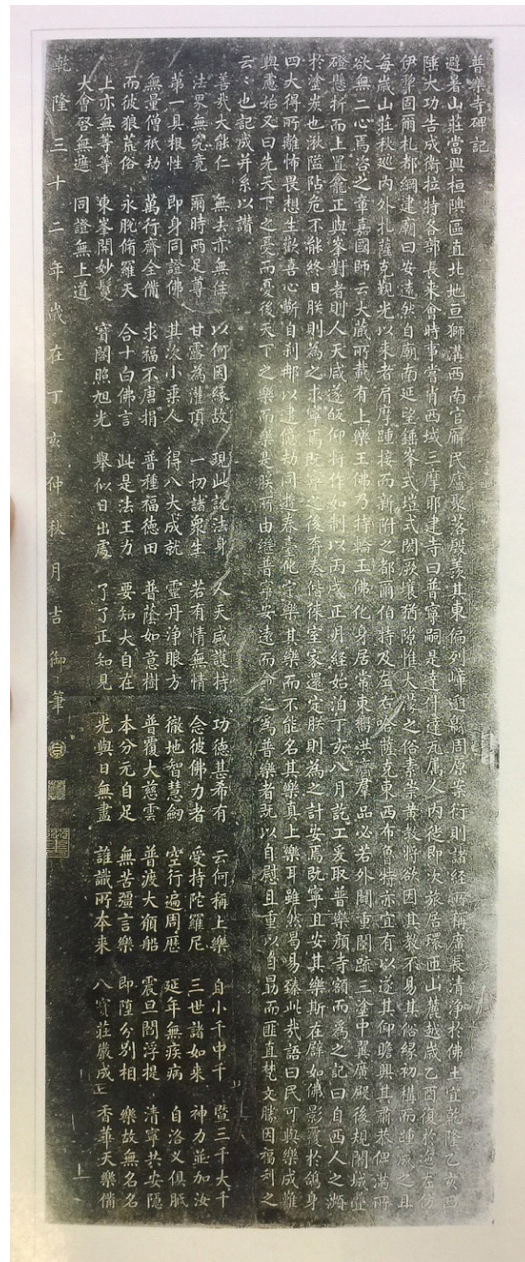 普樂寺碑記
避暑山莊當興桓隩區直北地亘獅溝西南官廨民廬聚落殷羨其東偏列嶂迤周原案衍則諸經所稱廣長清淨於佛土宜乾隆乙亥西
陲大功告成衛拉特各部長來會時事嘗肖西域三摩耶建寺曰普寧嗣是達什達瓦属人內徙即次旅居環匝山麓越歲乙酉復於迤左仿
伊犁固爾札都綱建廟曰安遠然自廟南延望錘峯式塏式閎厥壤猶隙惟大蒙之俗素崇黃敎將欲因其敎不易其俗緣初構而踵成之且
每歲山莊秋巡內外札薩克覲光以來者肩摩踵接而新附之都爾伯特及左右哈薩克東西布魯特亦宜有以遂其仰瞻興其肅恭俾滿所
欲無二心焉咨之章嘉國師云大藏所載有上樂王佛乃持輪王佛化身居常東嚮洪濟群品必若外闢重闉疏三塗中翼廣殿後規闍城疊
磴懸折而上置龕正與峯對者則人天咸遂皈仰將作如制以丙戌正月經始洎丁亥八月訖工爰取普樂顔寺額而為之記曰自西人之瀕
於塗炭也湫隘阽危不能終日朕則為之求寧焉既寧之後奔奏偕徠室家還定朕則為之計安焉既寧且安其樂斯在譬如佛影覆於鴿身
四大得所離怖畏想生歡喜心斬自刹那以逮億劫同遊春臺化宇樂其樂而不能名其樂真上樂耳雖然曷易臻此哉語曰民可與樂成難
與慮始又曰先天下之憂而憂後天下之樂而樂是朕所由繼普寧安遠而命之為普樂者既以自慰且重以自勗而匪直梵文勝因福利之
云云也記成并系以讃
善哉大能仁 無去亦無住 以何因緣故 現此說法身 人天咸護持 功德甚希有 云何稱上樂 自小千中千 暨三千大千
法界無究竟 爾時兩足尊 甘露為灌頂 一切諸衆生 若有情無情 念彼佛力者 受持陀羅尼 三世諸如來 神力並加汝
第一具根性 即身同證佛 其次小乘人 得八大成就 靈丹淨眼方 徹地智慧劍 空行遍周歷 延年無疾病 自洛乂俱胝
無量僧祇劫 萬行齊全備 求福不唐捐 普種福德田 普蔭如意樹 普覆大慈雲 普渡大願船 震旦閻浮提 清寧共安隱
而彼狼荒俗 永脫脩羅天 合十白佛言 此是法王力 要知大自在 本分元自足 無苦彊言樂 即墮分別相 樂故無名名
上亦無等等 東峯開妙鬘 寶閣照旭光 舉似日出處 了了正知見 光與日無盡 誰識所本來 八寶莊嚴成 香華天樂備
大會啓無遮 同證無上道
乾隆三十二年歲在丁亥仲秋月吉御筆